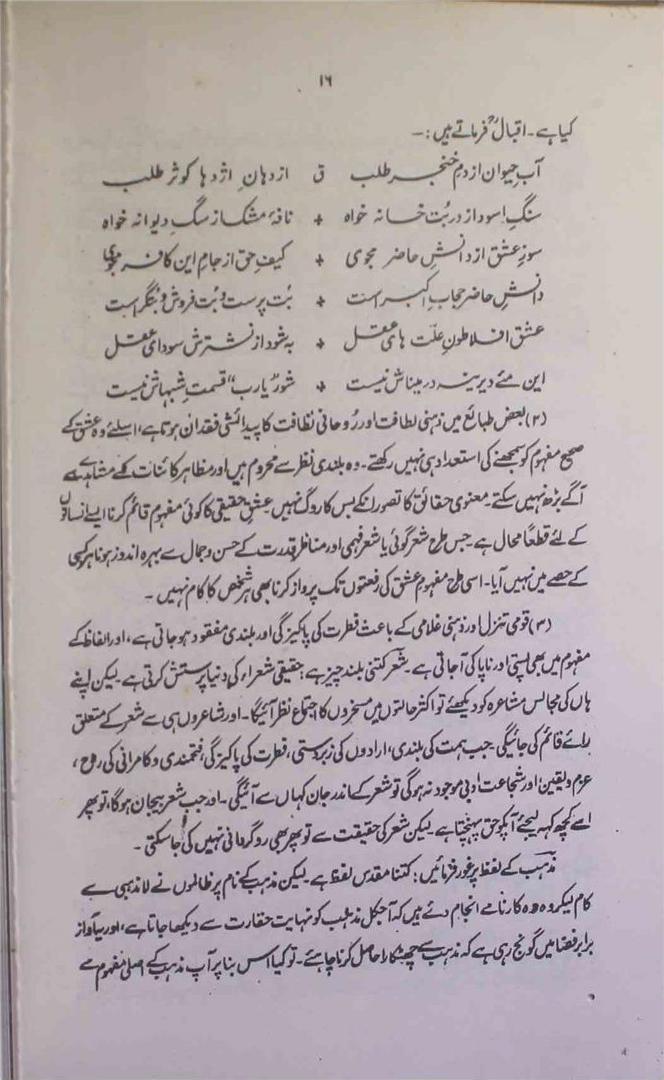 ۱۶
کیا ہے۔ اقبالؒ فرماتے ہیں:۔
آبِ حیوان از دمِ خنجر طلب ق از دہانِ اژدہا کوثر طلب
سنگِ اسود از درِ بُت خانہ خواہ + نافۂ مشک از سگِ دیوانہ خواہ
سوزِ عشق از دانشِ حاضر مجوی + کیفِ حق از جامِ این کافر مجوی
دانشِ حاضر حجابِ اکبر است + بُت پرست و بُت فروش و بتگر است
عشق افلاطونِ علّت ہای عقل + بہ شود از نشترش سودای عقل
این مئے دیرینہ در میناش نیست + شور "یارب" قسمتِ شبہاش نیست
(۲) بعض طبائع میں ذہنی لطافت اور رُوحانی نظافت کا پیدائشی فقدان ہوتا ہے، اسلئے وہ عشق کے
صحیح مفہوم کو سمجھنے کی استعداد ہی نہیں رکھتے۔ وہ بلندی نظر سے محروم ہیں اور مظاہر کائنات کے مشاہدے سے
آگے بڑھ نہیں سکتے۔ معنوی حقائق کا تصور انکے بس کا روگ نہیں۔ عشقِ حقیقی کا کوئی مفہوم قائم کرنا ایسے انسانوں
کے لئے قطعاً محال ہے۔ جس طرح شعر گوئی یا شعر فہمی اور مناظرِ قدرت کے حسن و جمال سے بہرہ اندوز ہونا ہر کسی
کے حصے میں نہیں آیا۔ اسی طرح مفہوم عشق کی رفعتوں تک پرواز کرنا بھی ہر شخص کا کام نہیں۔
(۳) قومی تنزل اور ذہنی غلامی کے باعث فطرت کی پاکیزگی اور بلندی مفقود ہو جاتی ہے، اور الفاظ کے
مفہوم میں بھی پستی اور ناپاکی آ جاتی ہے۔ شعر کتنی بلند چیز ہے؛ حقیقی شعراء کی دنیا پرستش کرتی ہے۔ لیکن اپنے
ہاں کی مجالس مشاعرہ کو دیکھئے تو اکثر حالتوں میں مسخروں کا اجتماع نظر آئیگا۔ اور شاعروں ہی سے شعر کے متعلق
رائے قائم کی جائیگی۔ جب ہمت کی بلندی، ارادوں کی زبردستی، فطرت کی پاکیزگی، فتحمندی و کامرانی کی روح،
عزم و یقین اور شجاعت ادبی موجود نہ ہوگی تو شعر کے اندر جان کہاں سے آئیگی۔ اور جب شعر بیجان ہوگا، تو پھر
اسے کچھ کہہ لیجئے آپکو حق پہنچتا ہے لیکن شعر کی حقیقت سے تو پھر بھی روگردانی نہیں کی جا سکتی۔
مذہب کے لفظ پر غور فرمائیں: کتنا مقدس لفظ ہے۔ لیکن مذہب کے نام پر ظالموں نے لا مذہبی سے
کام لیکر وہ وہ کارنامے انجام دئے ہیں کہ آجکل مذہب کو نہایت حقارت سے دیکھا جاتا ہے، اور یہ آواز
برابر فضا میں گونج رہی ہے کہ مذہب سے چھٹکارا حاصل کرنا چاہئے۔ تو کیا اس بنا پر آپ مذہب کے اصلی مفہوم سے